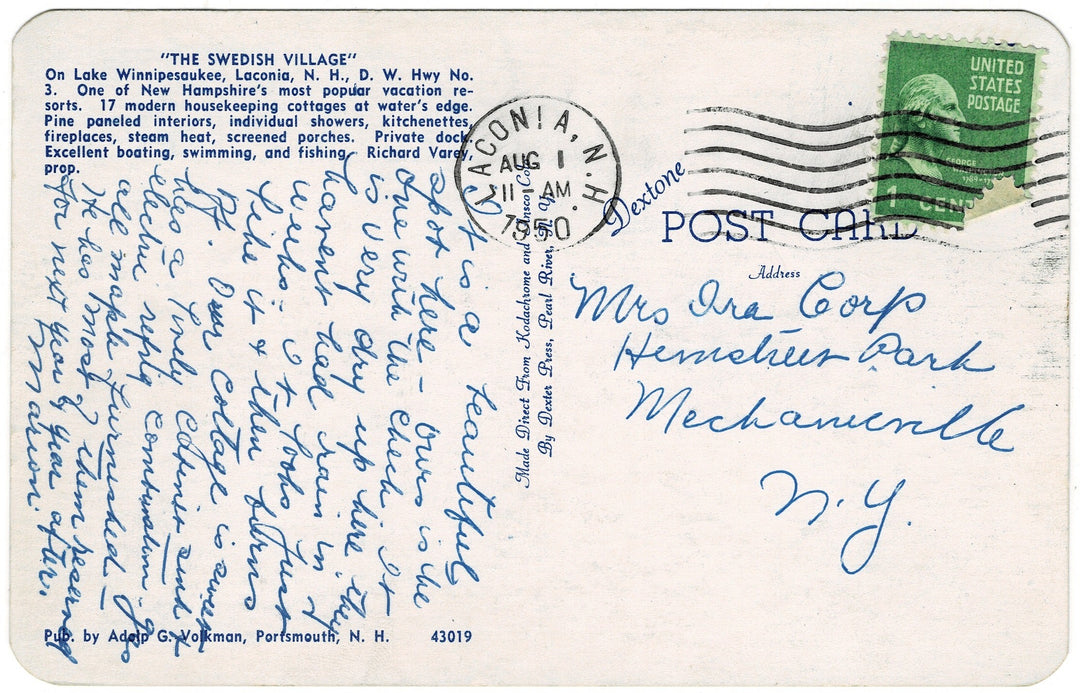 "THE SWEDISH VILLAGE"
On Lake Winnipesaukee, Laconia, N. H., D. W. Hwy No.
3. One of New Hampshire's most popular vacation re-
sorts. 17 modern housekeeping cottages at water's edge.
Pine paneled interiors, individual showers, kitchenettes,
fireplaces, steam heat, screened porches. Private dock.
Excellent boating, swimming, and fishing. Richard Varey,
prop.
It is a beautiful
spot here - ours is the
one with the check. It
is very dry up here they
havent had rain in
weeks. It looks just
like it & then turns
Our cottage is sweet
has a lovely cabinet sink &
electric refrig combination gas
all maple furnished.
He has most of them reserved
for next year & year after.
Marion.
Pub. by Adolp G. Volkman, Portsmouth, N. H. 43019
Made Direct From Kodachrome and Ansco Color
By Dexter Press, Pearl River, N. Y.
LACONIA, N.H.
AUG 1
11 - AM
1950
Dextone
POST CARD
UNITED
STATES
POSTAGE
GEORGE
1 CEN
Address
Mrs Ira Corp
Hemstreet Park
Mechanicville
N. Y.